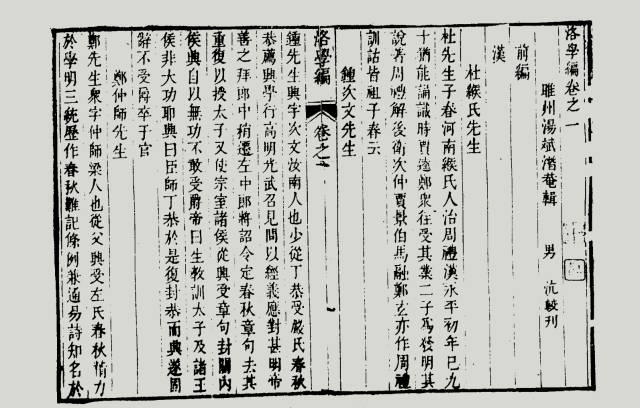 洛學編卷之一
睢州湯斌潛菴輯 男 沆較刊
前編
漢
杜緱氏先生
杜先生子春河南緱氏人治周禮漢永平初年巳九
十猶能誦識時賈逵鄭衆往受其業二子爲發明其
說著周禮解後衛次仲賈景伯馬融鄭玄亦作周禮
訓詁皆祖子春云
鍾次文先生
洛學編 卷之一
鍾先生興字次文汝南人也少從丁恭受嚴氏春秋
恭薦興學行高明光武召見問以經義應對甚明帝
善之拜郎中稍遷左中郎將詔令定春秋章句去其
重復以授太子又使宗室諸侯從興受章句封關內
侯興自以無功不敢受爵帝曰生教訓太子及諸王
侯非大功耶興曰臣師丁恭於是復封恭而興遂固
辭不受爵卒于官
鄭仲師先生
鄭先生衆字仲師梁人也從父興受左氏春秋精力
於學明三統歷作春秋難記條例兼通易詩知名於